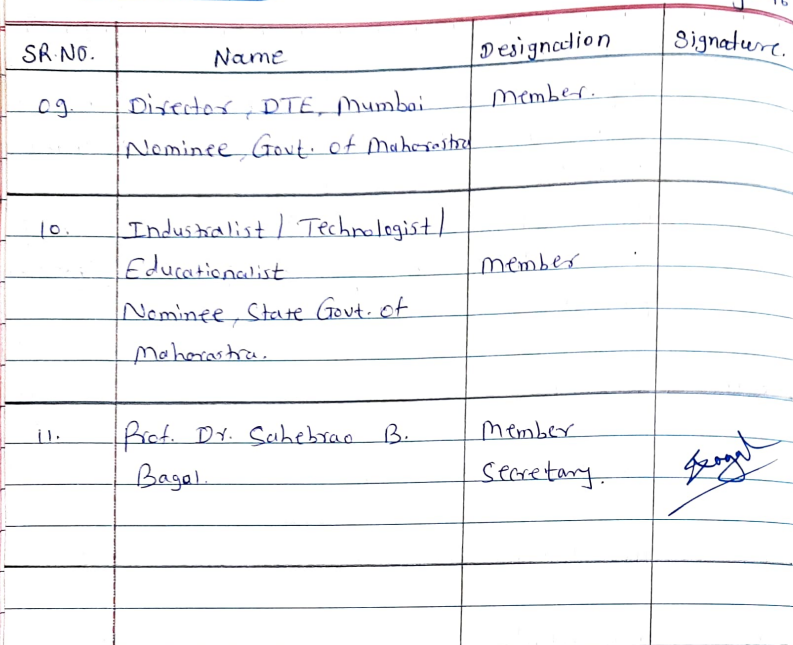 SR.NO. Name Designation Signature.
09. Director, DTE, Mumbai Member.
Nominee, Govt. of Maharastra
10. Industralist / Technologist /
Educationalist Member
Nominee, State Govt. of
Maharastra.
11. Prof. Dr. Sahebrao B. Member
Bagal. Secretary.